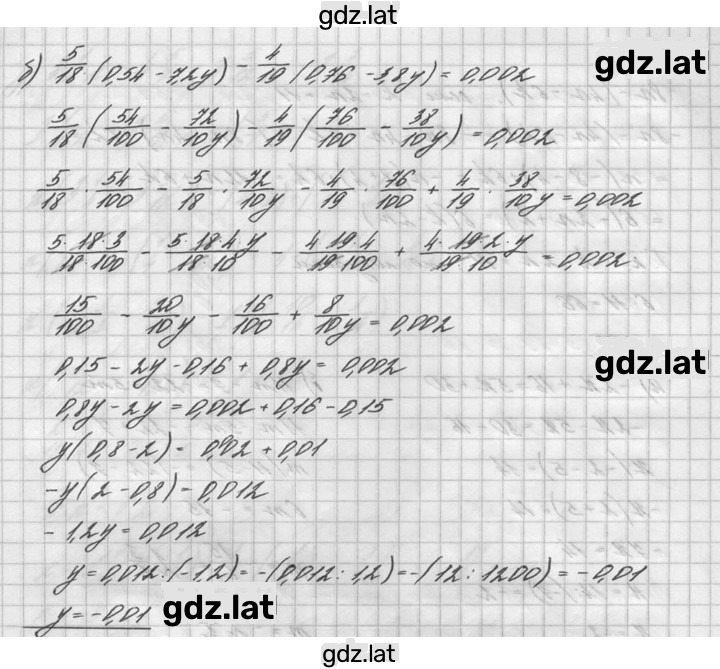 gdz.lat
б) 5/18 (0,54 - 7,2y) - 4/19 (0,76 - 3,8y) = 0,002
gdz.lat
5/18 (54/100 - 72/10 y) - 4/19 (76/100 - 38/10 y) = 0,002
5/18 · 54/100 - 5/18 · 72/10 y - 4/19 · 76/100 + 4/19 · 38/10 y = 0,002
5·18·3/18·100 - 5·18·4·y/18·10 - 4·19·4/19·100 + 4·19·2·y/19·10 = 0,002
15/100 - 20/10 y - 16/100 + 8/10 y = 0,002
0,15 - 2y - 0,16 + 0,8y = 0,002
gdz.lat
0,8y - 2y = 0,002 + 0,16 - 0,15
y(0,8 - 2) = 0,002 + 0,01
-y(2 - 0,8) = 0,012
- 1,2y = 0,012
y = 0,012 : (-1,2) = -(0,012 : 1,2) = -(12 : 1200) = -0,01
y = -0,01
gdz.lat
gdz.lat
gdz.lat